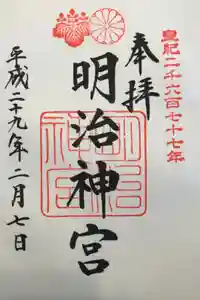 皇紀二千六百七十七年
奉拝
明治神宮
平成二十九年二月七日
明治神宮